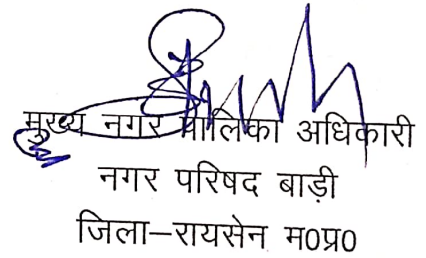 मुख्य नगर पालिका अधिकारी
नगर परिषद बाड़ी
जिला–रायसेन म0प्र0